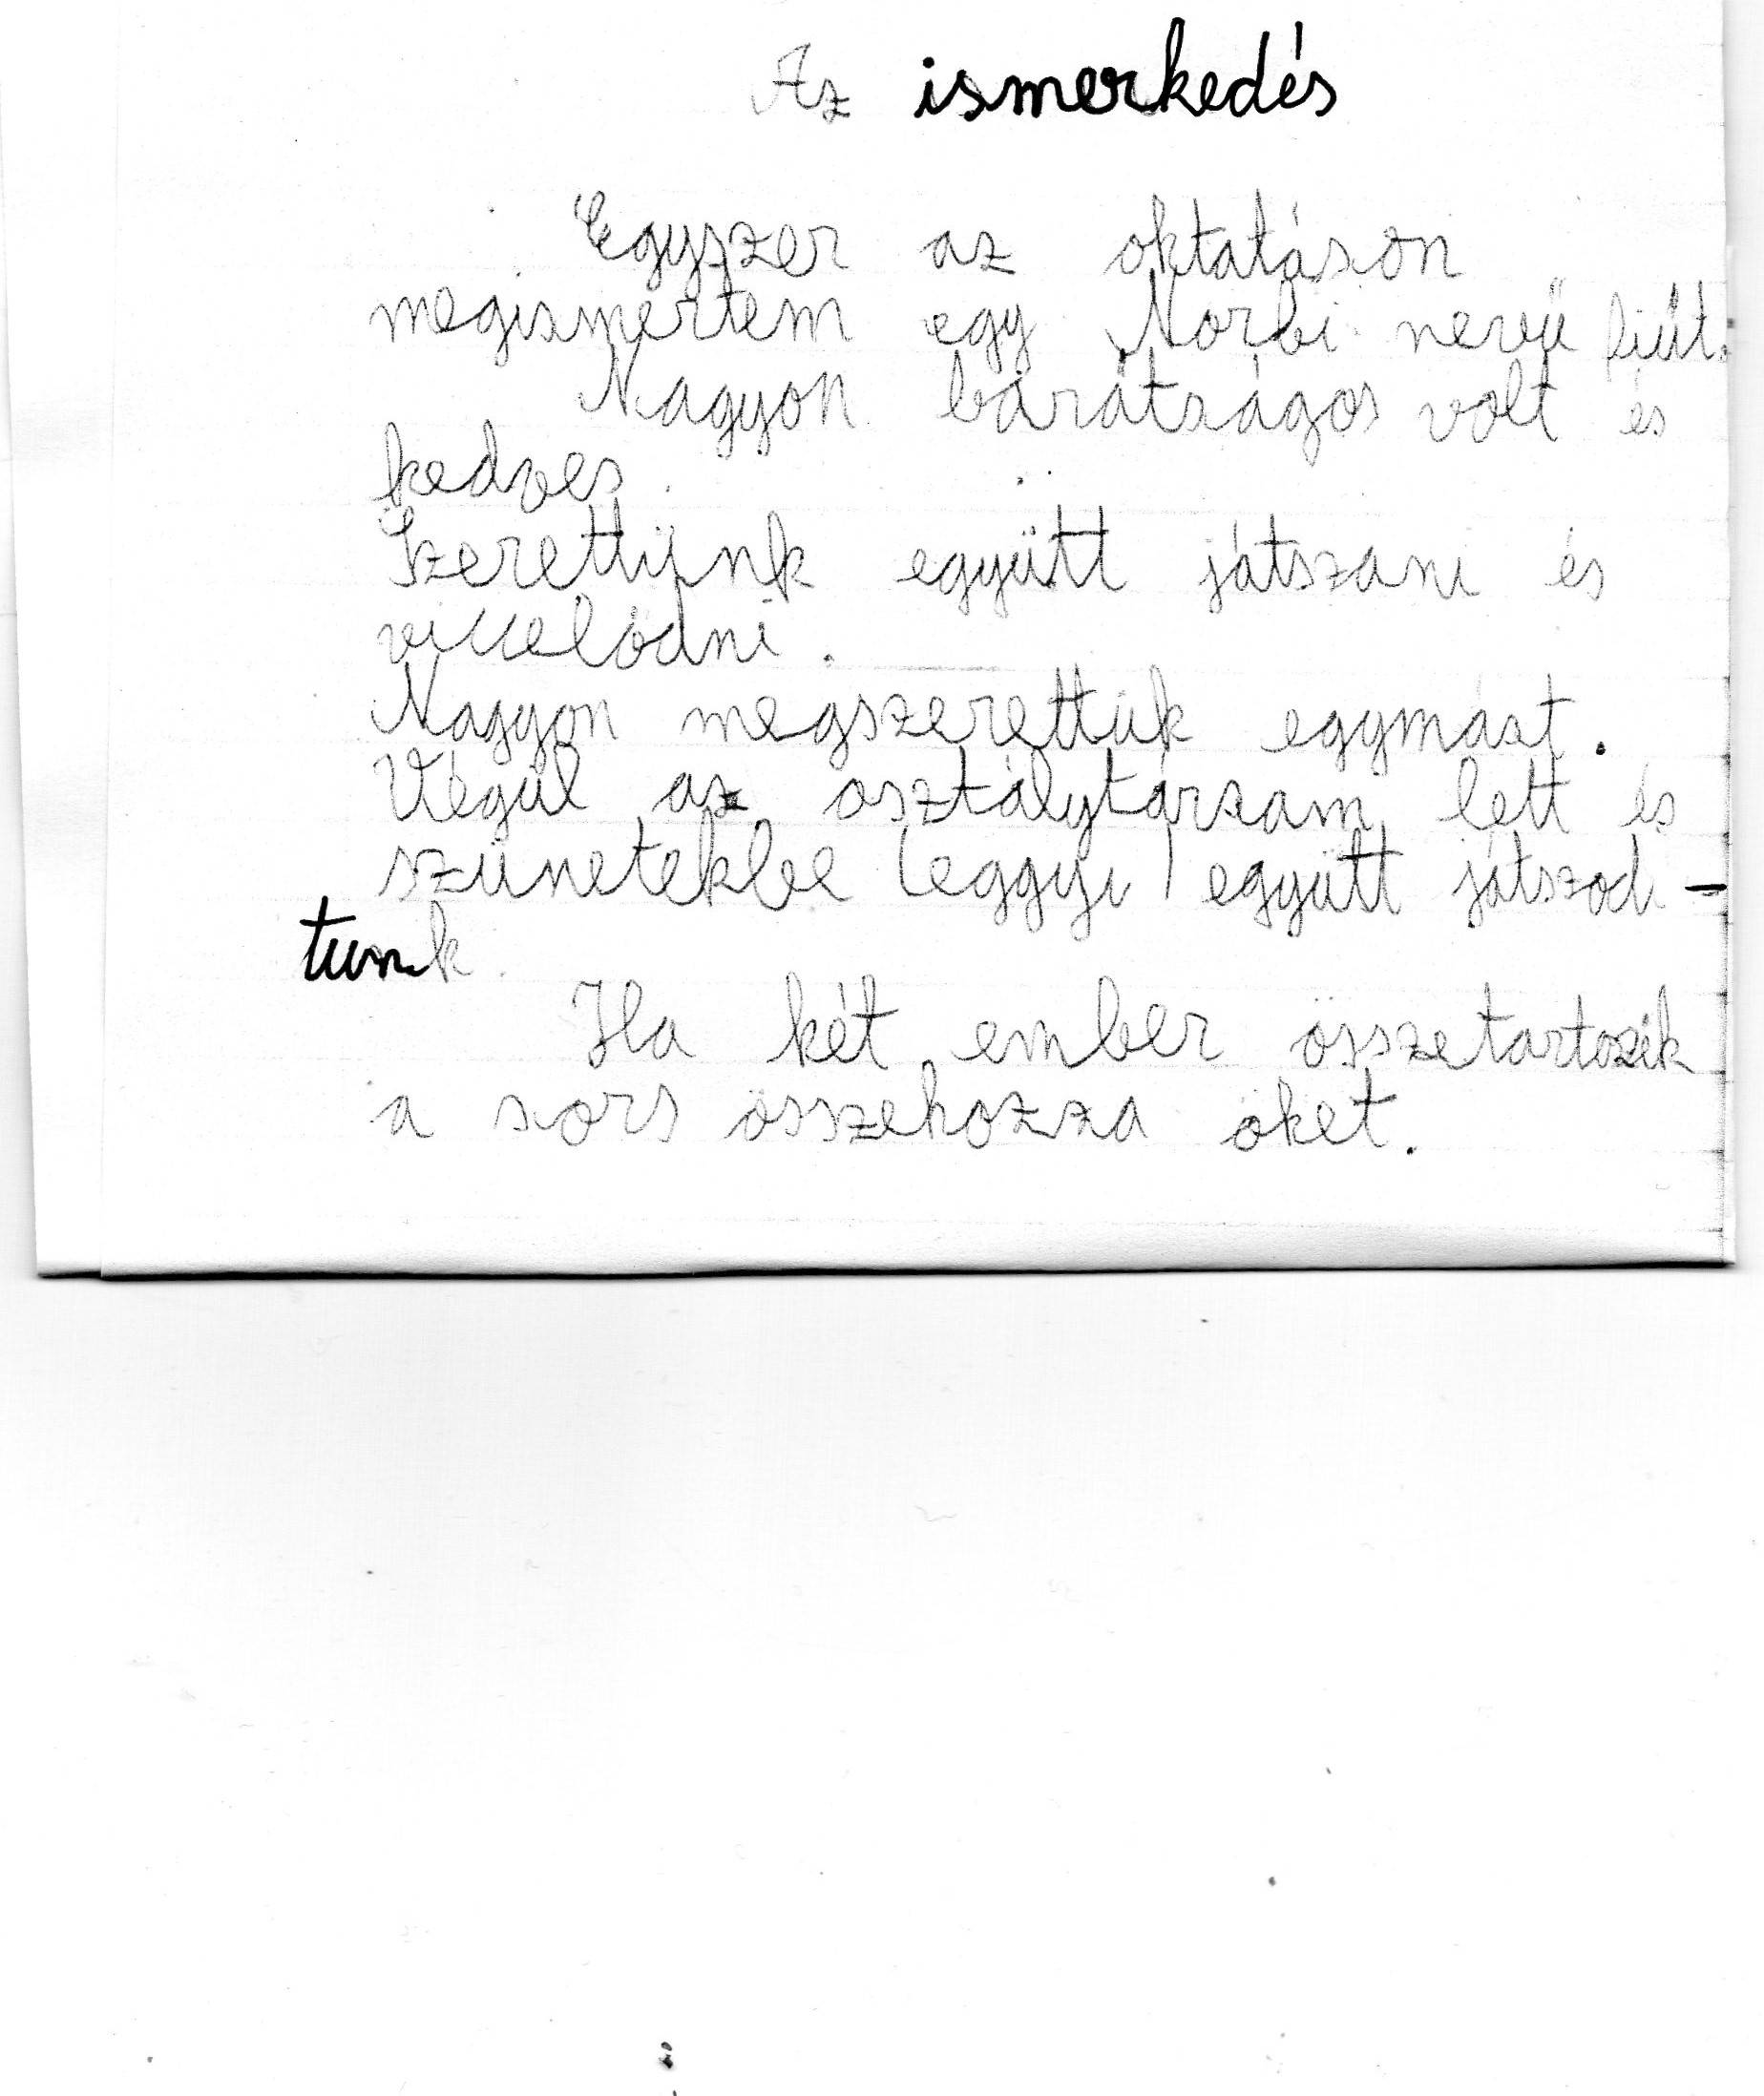 Az ismerkedés
Egyszer az oktatáson
megismertem egy Norbi nevű fiút.
Nagyon barátságos volt és
kedves.
Szerettünk együtt játszani és
viccelődni.
Nagyon megszerettük egymást.
Végül az osztálytársam lett és
szünetekbe (eggyi) együtt játszod-
tunk.
Ha két ember összetartozik
a sors összehozza őket.